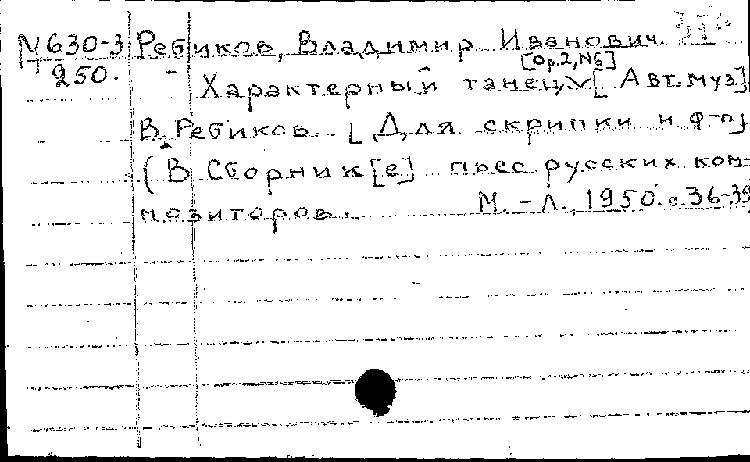 М630-3 Ребиков, Владимир Иванович.
250. Характерный танец [Op.2, №6] [Авт. муз]
В. Ребиков. [Для скрипки и ф-п]
(В Сборник[е] пьес русских ком-
позиторов. М.-Л., 1950. с. 36-39